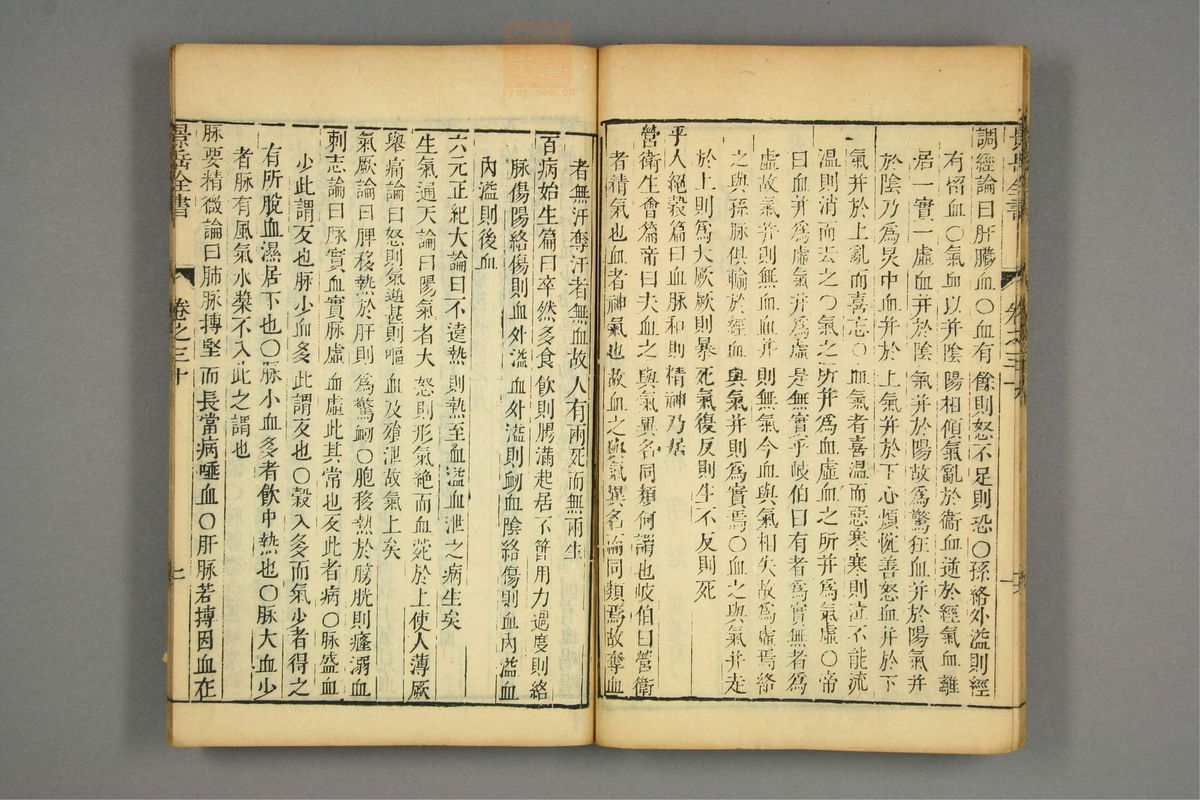 景岳全書
卷之三十
調經論曰肝臟血○血有餘則怒不足則恐○孫絡外溢則經
有留血○氣血以并陰陽相傾氣亂於衞血逆於經氣血離
居一實一虛血并於陰氣并於陽故爲驚狂血并於陽氣并
於陰乃爲炅中血并於上氣并於下心煩惋善怒血并於下
氣并於上亂而喜忘○血氣者喜溫而惡寒寒則泣不能流
溫則消而去之○氣之所并爲血虛血之所并爲氣虛○帝
曰血并爲虛氣并爲虛是無實乎岐伯曰有者爲實無者爲
虛故氣并則無血血并則無氣今血與氣相失故爲虛焉絡
之與孫脉俱輸於經血與氣并則爲實焉○血之與氣并走
於上則爲大厥厥則暴死氣復反則生不反則死
平人絕穀篇曰血脉和則精神乃居
營衛生會篇帝曰夫血之與氣異名同類何謂也岐伯曰營衛
者精氣也血者神氣也故血之與氣異名而同類焉故奪血
者無汗奪汗者無血故人有兩死而無兩生
百病始生篇曰卒然多食飲則腸滿起居不節用力過度則絡
脉傷陽絡傷則血外溢血外溢則衂血陰絡傷則血內溢血
內溢則後血
六元正紀大論曰不遠熱則熱至血溢血泄之病生矣
生氣通天論曰陽氣者大怒則形氣絕而血菀於上使人薄厥
舉痛論曰怒則氣逆甚則嘔血及飧泄故氣上矣
氣厥論曰脾移熱於肝則爲驚衂○胞移熱於膀胱則癃溺血
刺志論曰脉實血實脉虛血虛此其常也反此者病○脉盛血
少此謂反也脉少血多此謂反也○穀入多而氣少者得之
有所脫血濕居下也○脉小血多者飲中熱也○脉大血少
者脉有風氣水漿不入此之謂也
脉要精微論曰肺脉搏堅而長當病唾血○肝脉若搏因血在
景岳全書
卷之三十
七